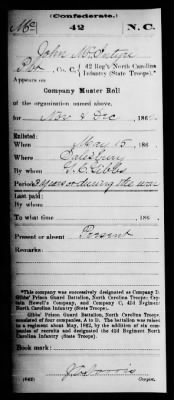 (Confederate.)
Mc 42 N.C.
John McIntyre
Pvt, Co. C, 42 Reg't North Carolina
Infantry (State Troops).*
Appears on
Company Muster Roll
of the organization named above,
for Nov & Dec, 186
Enlisted:
When May 15, 186
Where Salisbury
By whom G. C. Gibbs
Period 3 years or during the war
Last paid:
By whom
To what time , 186
Present or absent Present
Remarks:
*This company was successively designated as Company D,
Gibbs' Prison Guard Battalion, North Carolina Troops; Cap-
tain Howell's Company, and Company C, 42d Regiment
North Carolina Infantry (State Troops).
Gibbs' Prison Guard Battalion, North Carolina Troops,
consisted of four companies, A to D. The battalion was raised
to a regiment about May, 1862, by the addition of six com-
panies of recruits and designated the 42d Regiment North
Carolina Infantry (State Troops).
Book mark:
(642) Copyist.